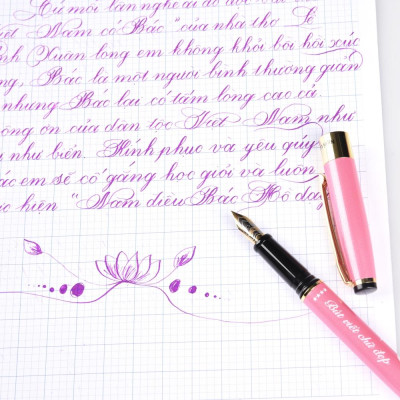 mỗi lần nghe ai đó
Việt Nam có Bác "của nhà thơ Lê
Xuân lòng em không khỏi bồi hồi xúc
Bác là một người bình thường giản
nhưng Bác lại có tấm lòng cao cả
ông ơn của dân tộc Việt Nam như
như biển. Kính phục và yêu quý
em sẽ cố gắng học giỏi và luôn
hiện "Năm điều Bác Hồ dạy
Bút viết chữ đẹp